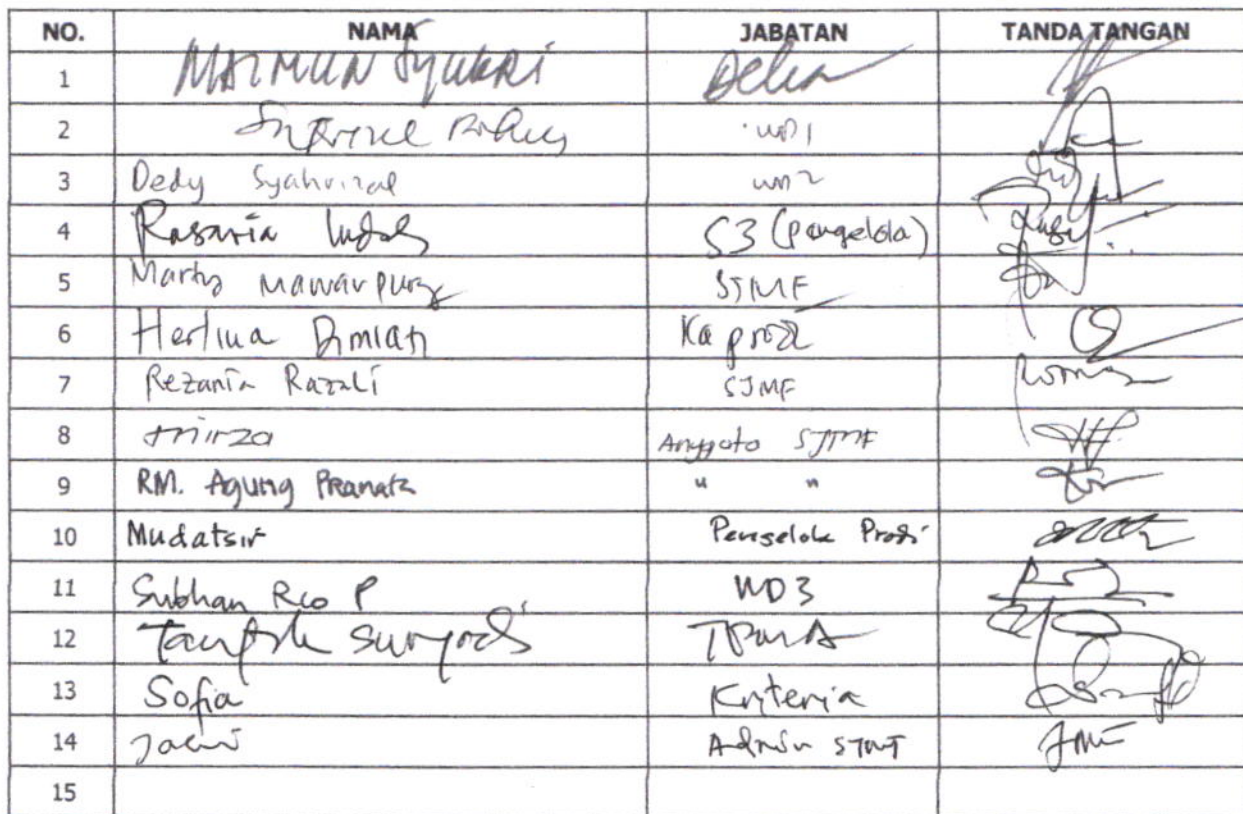 NO. NAMA JABATAN TANDA TANGAN
1 MAIMUN Syukri Dekan
2 WD1
3 Dedy Syahrizal WD2
4 Rosaria Indah S3 (pengelola)
5 Marty Mawarpury SJMF
6 Herlina Dimiati Ka prodi
7 Rezania Razali SJMF
8 Mirza Anggota SJMF
9 RM. Agung Pranata " "
10 Mudatsir Pengelola Prodi
11 Subhan Rio P WD3
12 Taufik Suryadi TPMA
13 Sofia Kriteria
14 Admin SJMF
15